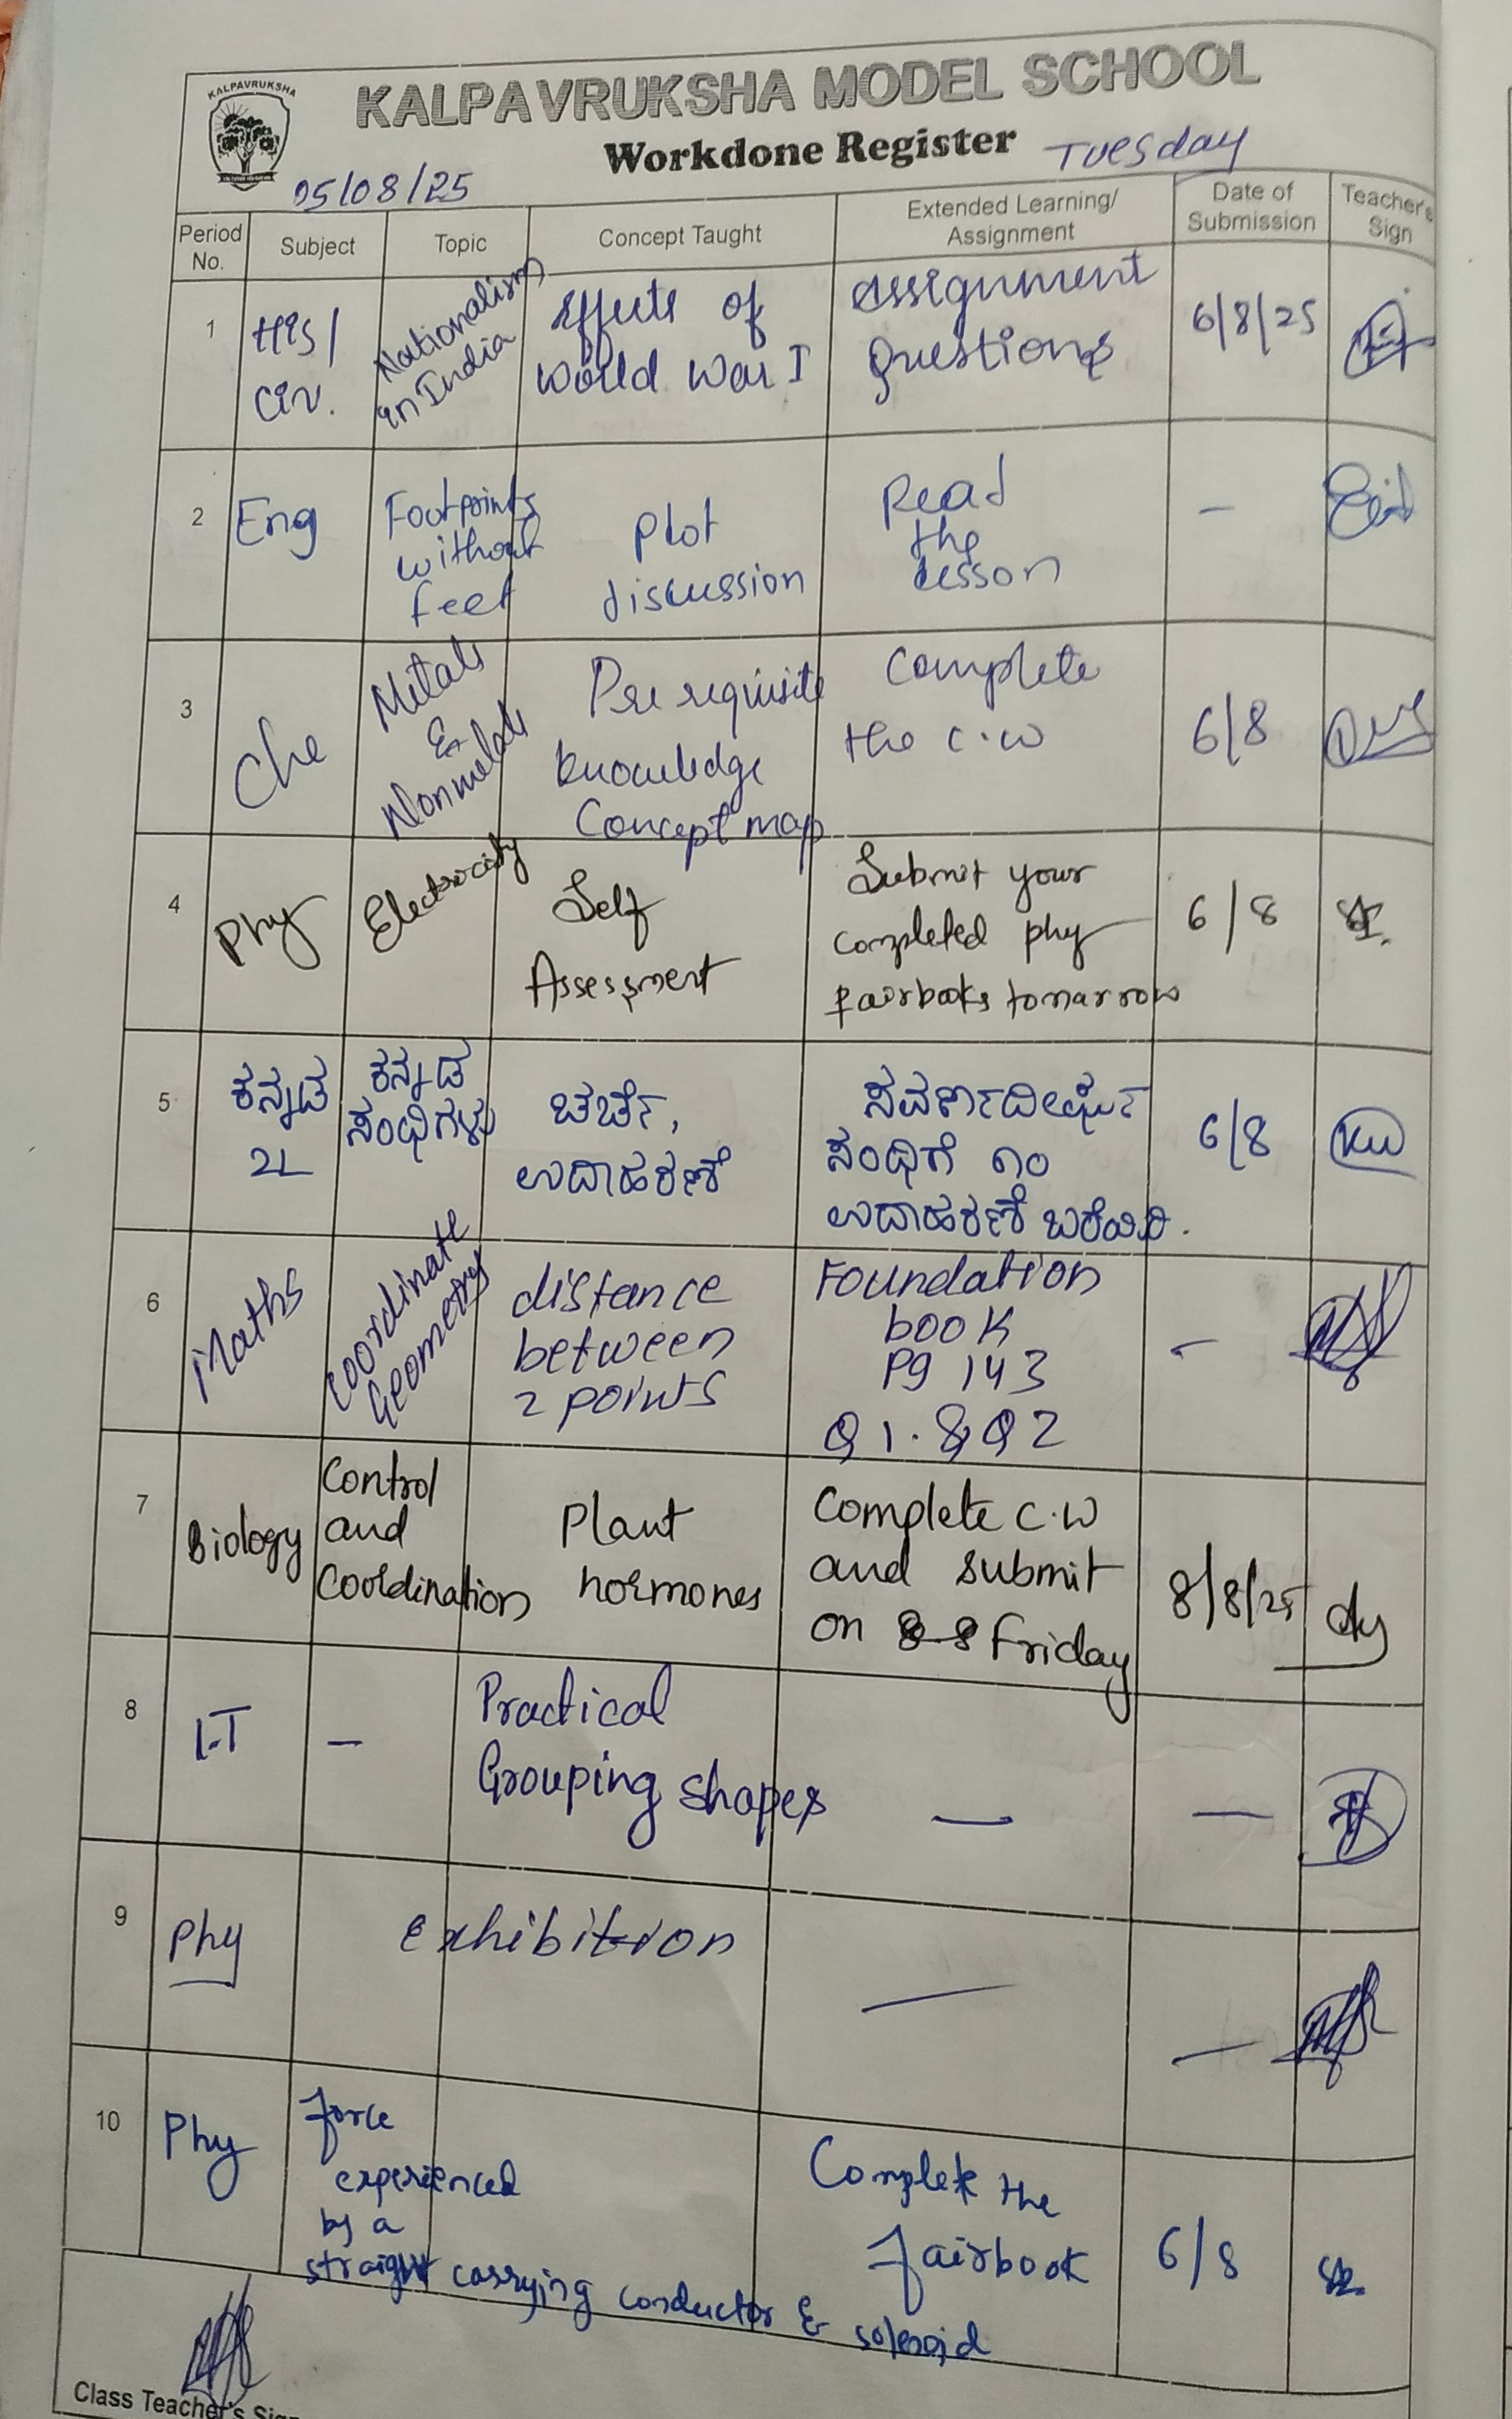 KALPAVRUKSHA
KALPAVRUKSHA MODEL SCHOOL
Workdone Register Tuesday
05/08/25
Period No. Subject Topic Concept Taught Extended Learning/ Assignment Date of Submission Teacher's Sign
1 His/ Nationalism Effects of Assignment 6/8/25
Civ. in India World War I Questions
2 Eng Footprints plot Read –
without discussion the
feet lesson
3 Che Metals Pre requisite Complete 6/8
& knowledge the c.w
Nonmetals Concept map
4 Phy Electricity Self Submit your 6/8
Assessment completed phy
fairbooks tomarrow
5 ಕನ್ನಡ ಕನ್ನಡ ಚರ್ಚೆ, ಸವರ್ಣದೀರ್ಘ 6/8
2L ಸಂಧಿಗಳು ಉದಾಹರಣೆ ಸಂಧಿಗೆ ೧೦
ಉದಾಹರಣೆ ಬರೆಯಿರಿ.
6 Maths Coordinate distance Foundation –
Geometry between book
2 points Pg 143
Q1. & Q2
7 Biology Control Plant Complete c.w 8/8/25
and hormones and submit
Coordination on Friday
8 I.T – Practical — —
Grouping shapes
9 Phy exhibition — —
10 Phy force Complete the 6/8
experienced fairbook
by a
straight carrying conductor & solenoid
Class Teacher's